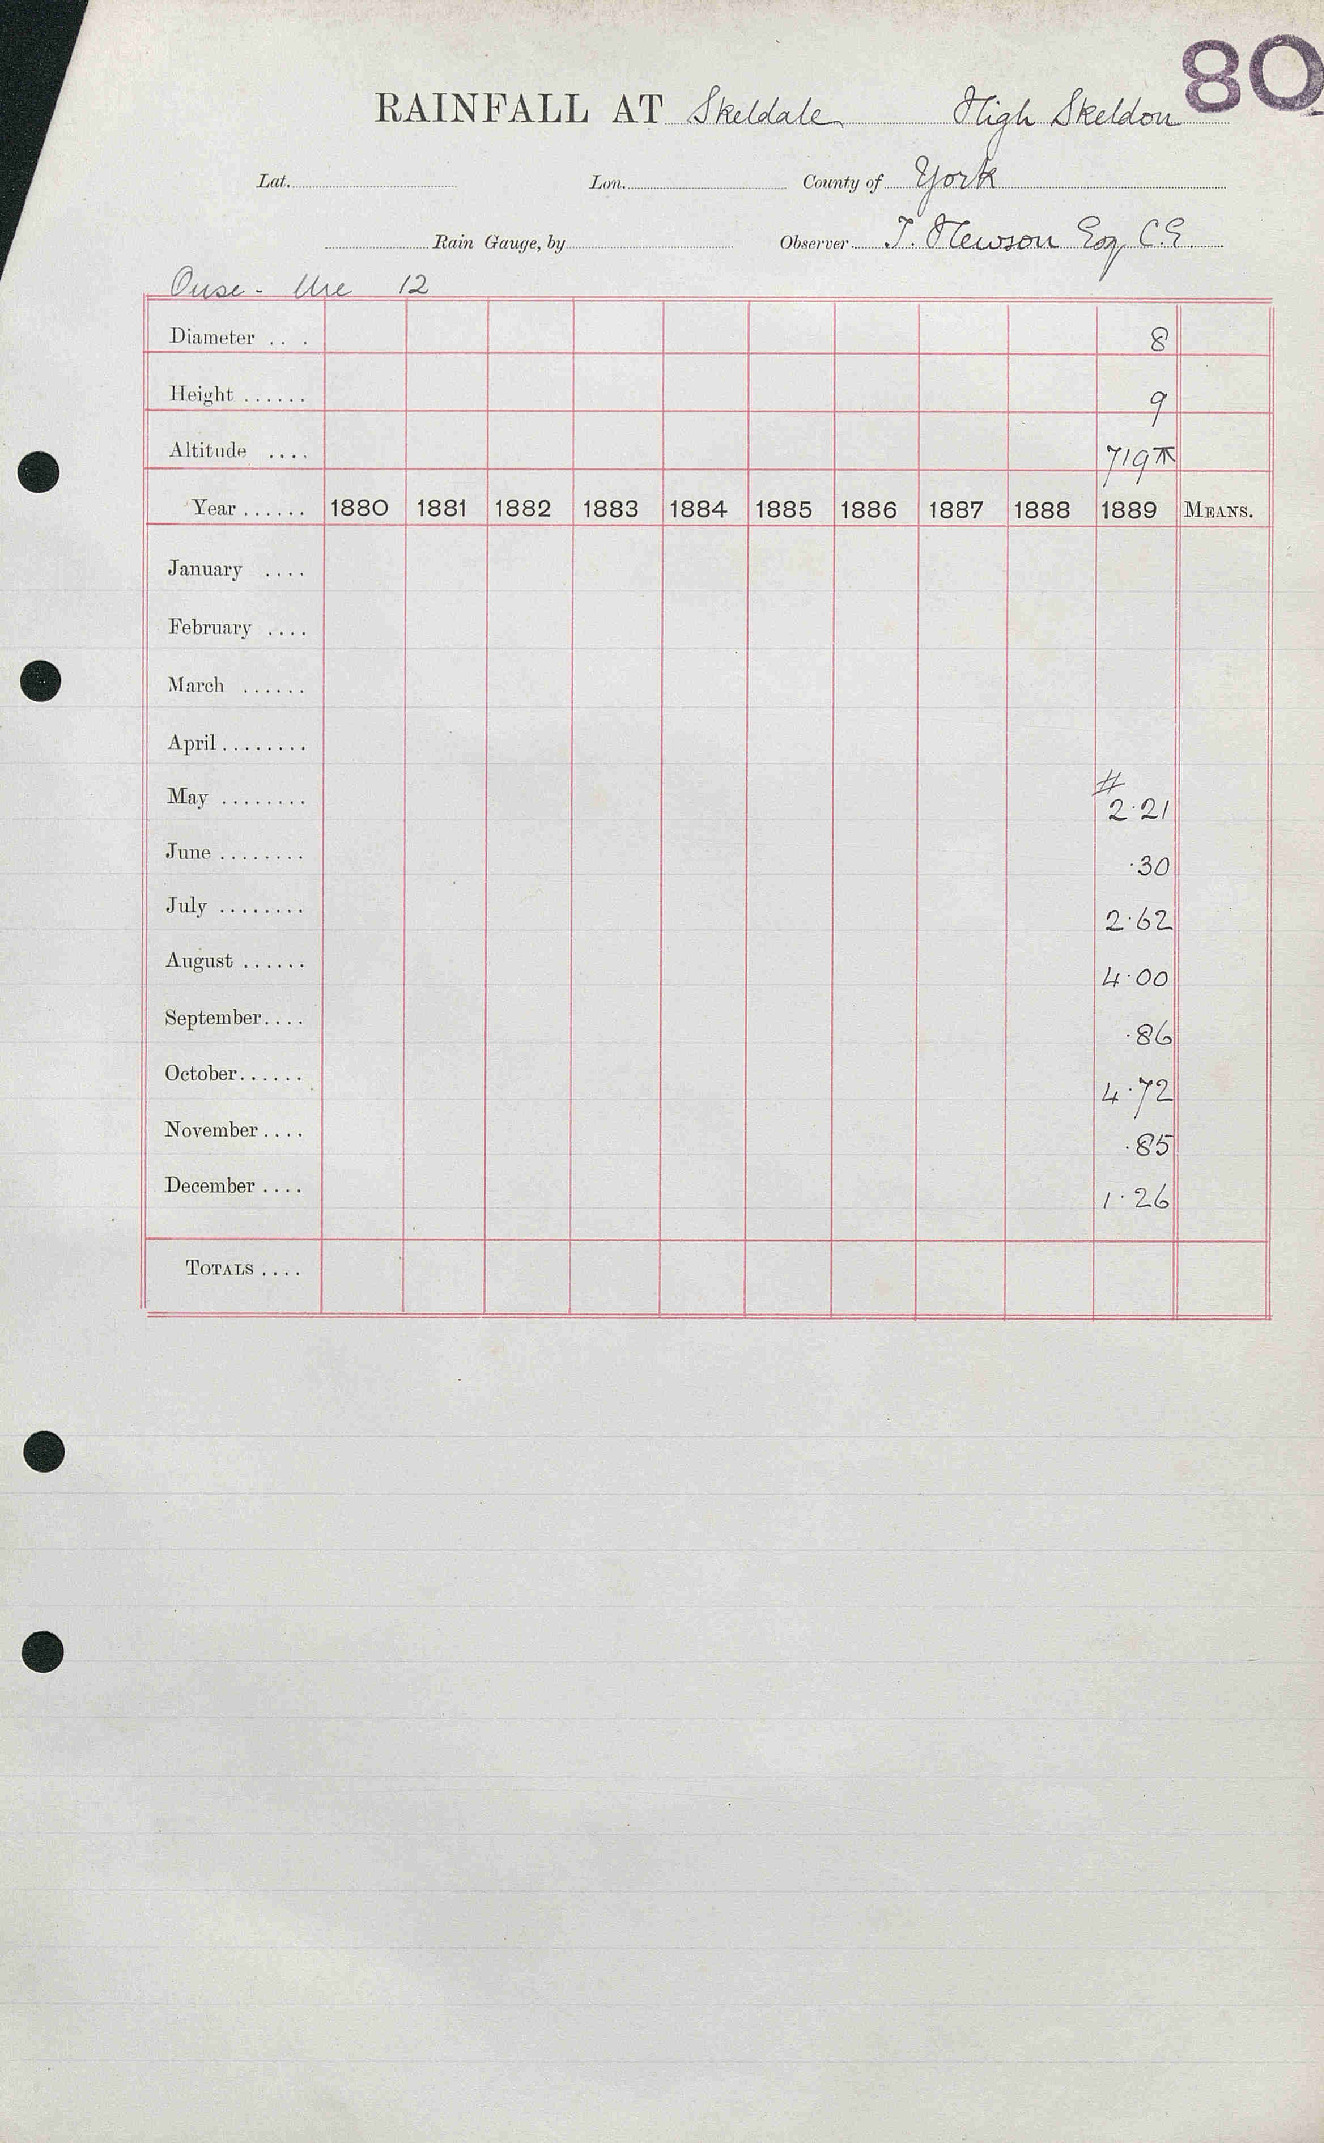 80
RAINFALL AT Skeldale High Skeldon
Lat. Lon. County of York
Rain Gauge, by Observer T. Hewson Esq C.E
Ouse - Ure 12
Diameter ... 8
Height ...... 9
Altitude .... 719
Year ...... 1880 1881 1882 1883 1884 1885 1886 1887 1888 1889 MEANS.
January ....
February ....
March ......
April ........
#
May ........ 2.21
June ........ .30
July ........ 2.62
August ...... 4.00
September.... .86
October...... 4.72
November.... .85
December.... 1.26
TOTALS ....